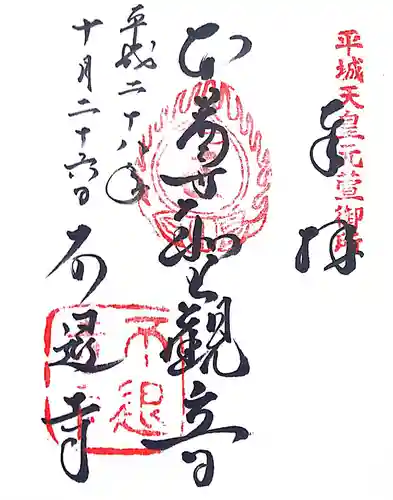 平城天皇元萱御所
奉拝
本尊聖觀音
平成二十八年
十月二十六日
不退寺
不退